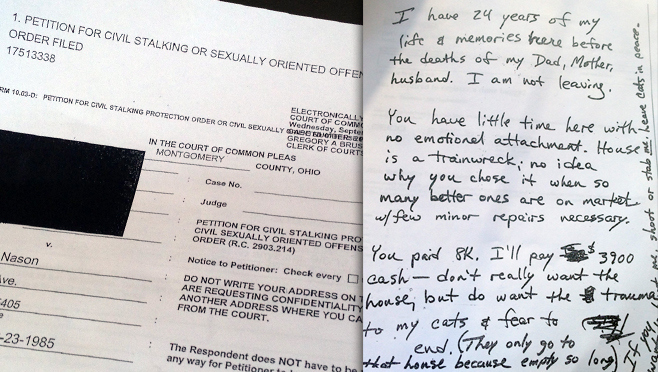 1. PETITION FOR CIVIL STALKING OR SEXUALLY ORIENTED OFFEN
ORDER FILED
17513338
RM 10.03-D: PETITION FOR CIVIL STALKING PROTECTION ORDER OR CIVIL SEXUALLY
ELECTRONICALLY
COURT OF COMMO
Wednesday, Septe
GREGORY A BRUS
CLERK OF COURTS
IN THE COURT OF COMMON PLEAS
MONTGOMERY COUNTY, OHIO
Case No.
Judge
PETITION FOR CIVIL STALKING PRO
CIVIL SEXUALLY ORIENTED OFFENS
ORDER (R.C. 2903.214)
v.
Nason
Notice to Petitioner: Check every
Ave.
DO NOT WRITE YOUR ADDRESS ON T
ARE REQUESTING CONFIDENTIALITY
ANOTHER ADDRESS WHERE YOU CA
FROM THE COURT.
405
-23-1985
The Respondent does NOT have to be
any way for Petitioner to
I have 24 years of my
life & memories here before
the deaths of my Dad, Mother,
husband. I am not leaving.
You have little time here with
no emotional attachment. House
is a trainwreck; no idea
why you chose it when so
many better ones are on market
w/few minor repairs necessary.
You paid 8K. I'll pay $3900
cash — don't really want the
house, but do want the trauma
to my cats & fear to
end. (They only go to
that house because empty so long)
If you
want to me, shoot or stab me. Leave cats in peace.